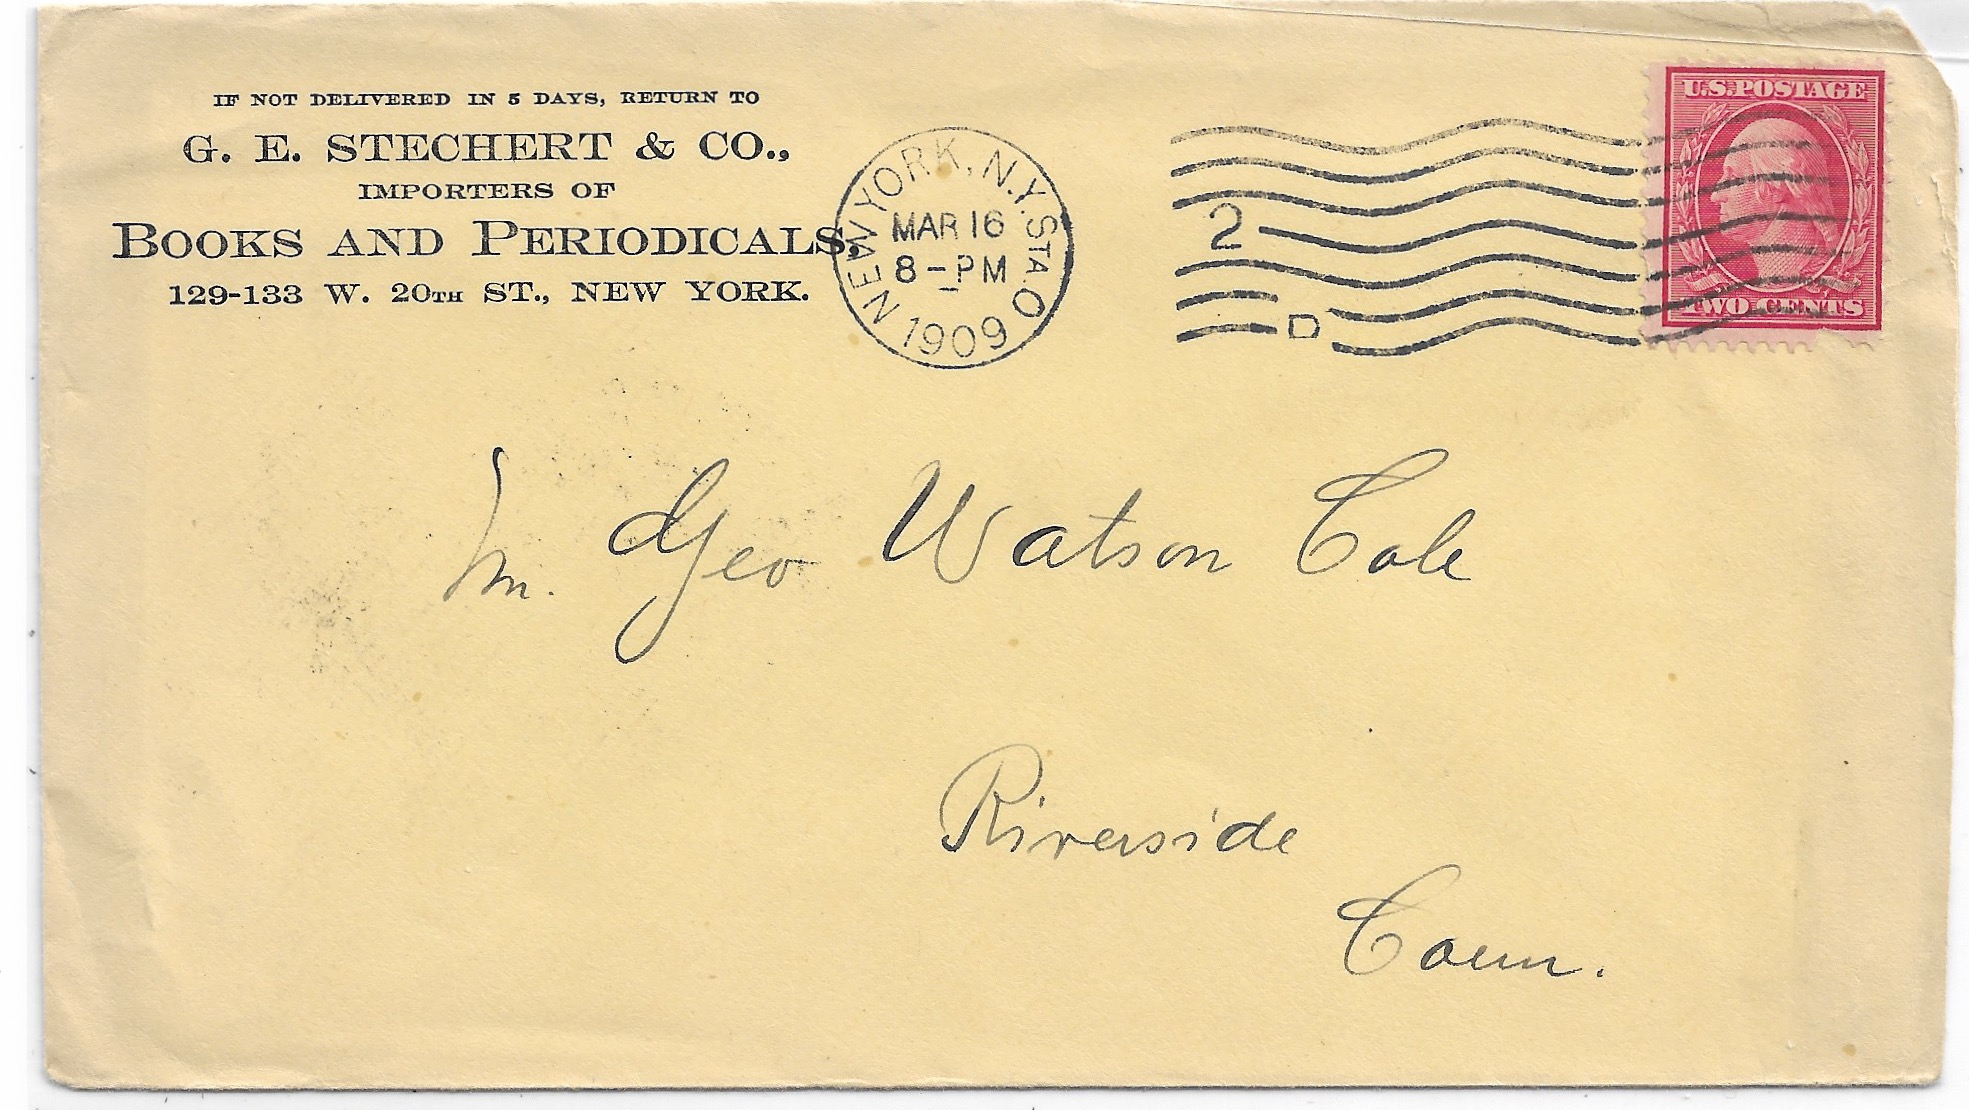 IF NOT DELIVERED IN 5 DAYS, RETURN TO
G. E. STECHERT & CO.,
IMPORTERS OF
BOOKS AND PERIODICALS,
129-133 W. 20TH ST., NEW YORK.
NEW YORK, N.Y. STA. O
MAR 16
8-PM
1909
2
D
U.S. POSTAGE
TWO CENTS
Mr. Geo Watson Cole
Riverside
Conn.